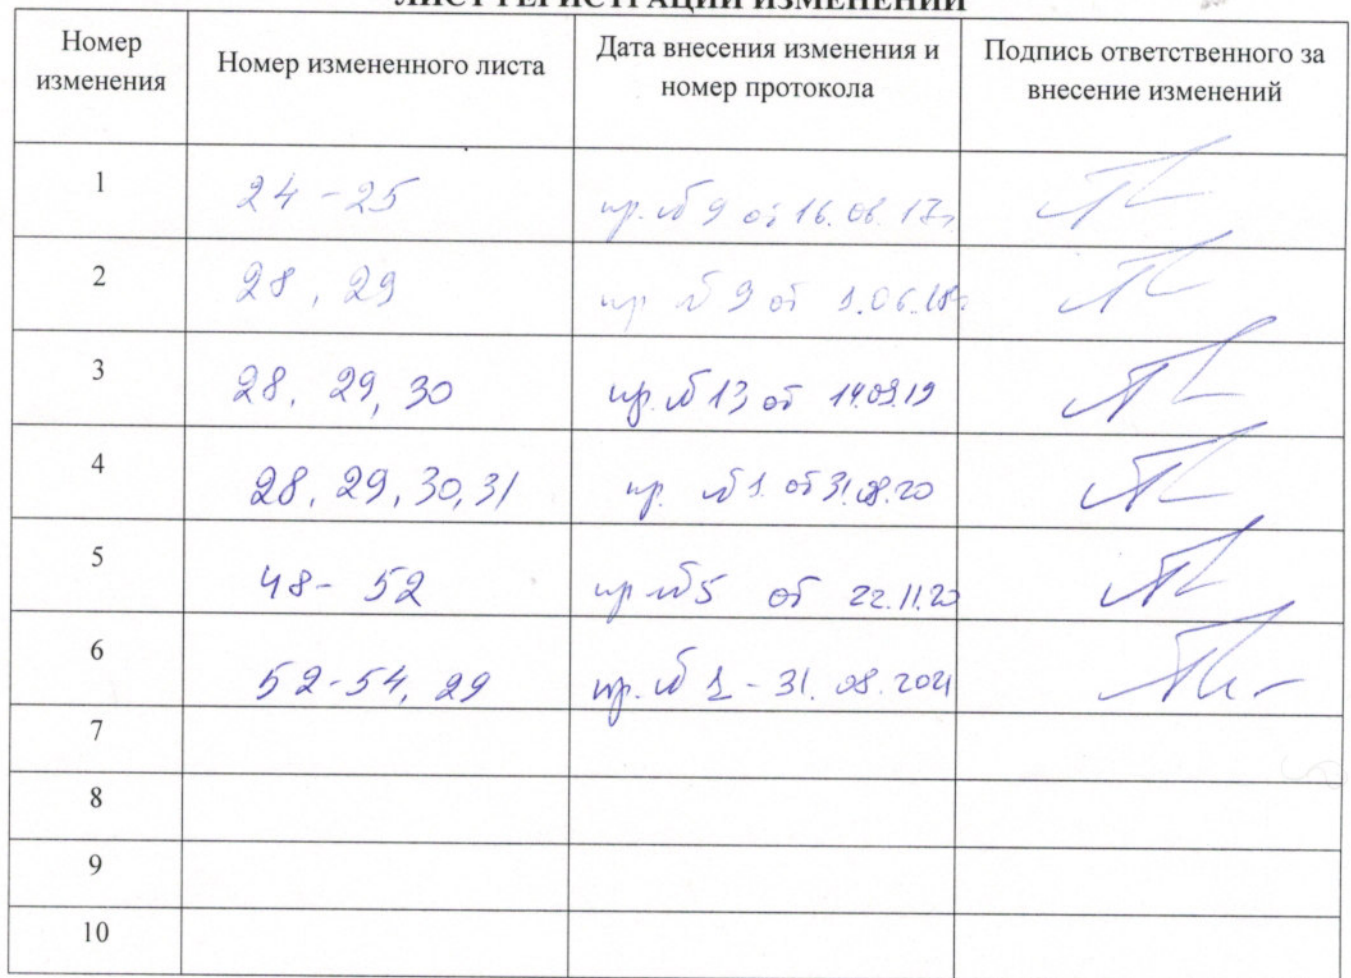 ЛИСТ РЕГИСТРАЦИИ ИЗМЕНЕНИЙ
Номер изменения
Номер измененного листа
Дата внесения изменения и номер протокола
Подпись ответственного за внесение изменений
1
24-25
пр. № 9 от 16.06.17г
2
28, 29
пр № 9 от 1.06.18г
3
28, 29, 30
пр. № 13 от 14.09.19
4
28, 29, 30, 31
пр. № 1 от 31.08.20
5
48- 52
пр №5 от 22.11.20
6
52-54, 29
пр. № 1 - 31. 08. 2021
7
8
9
10